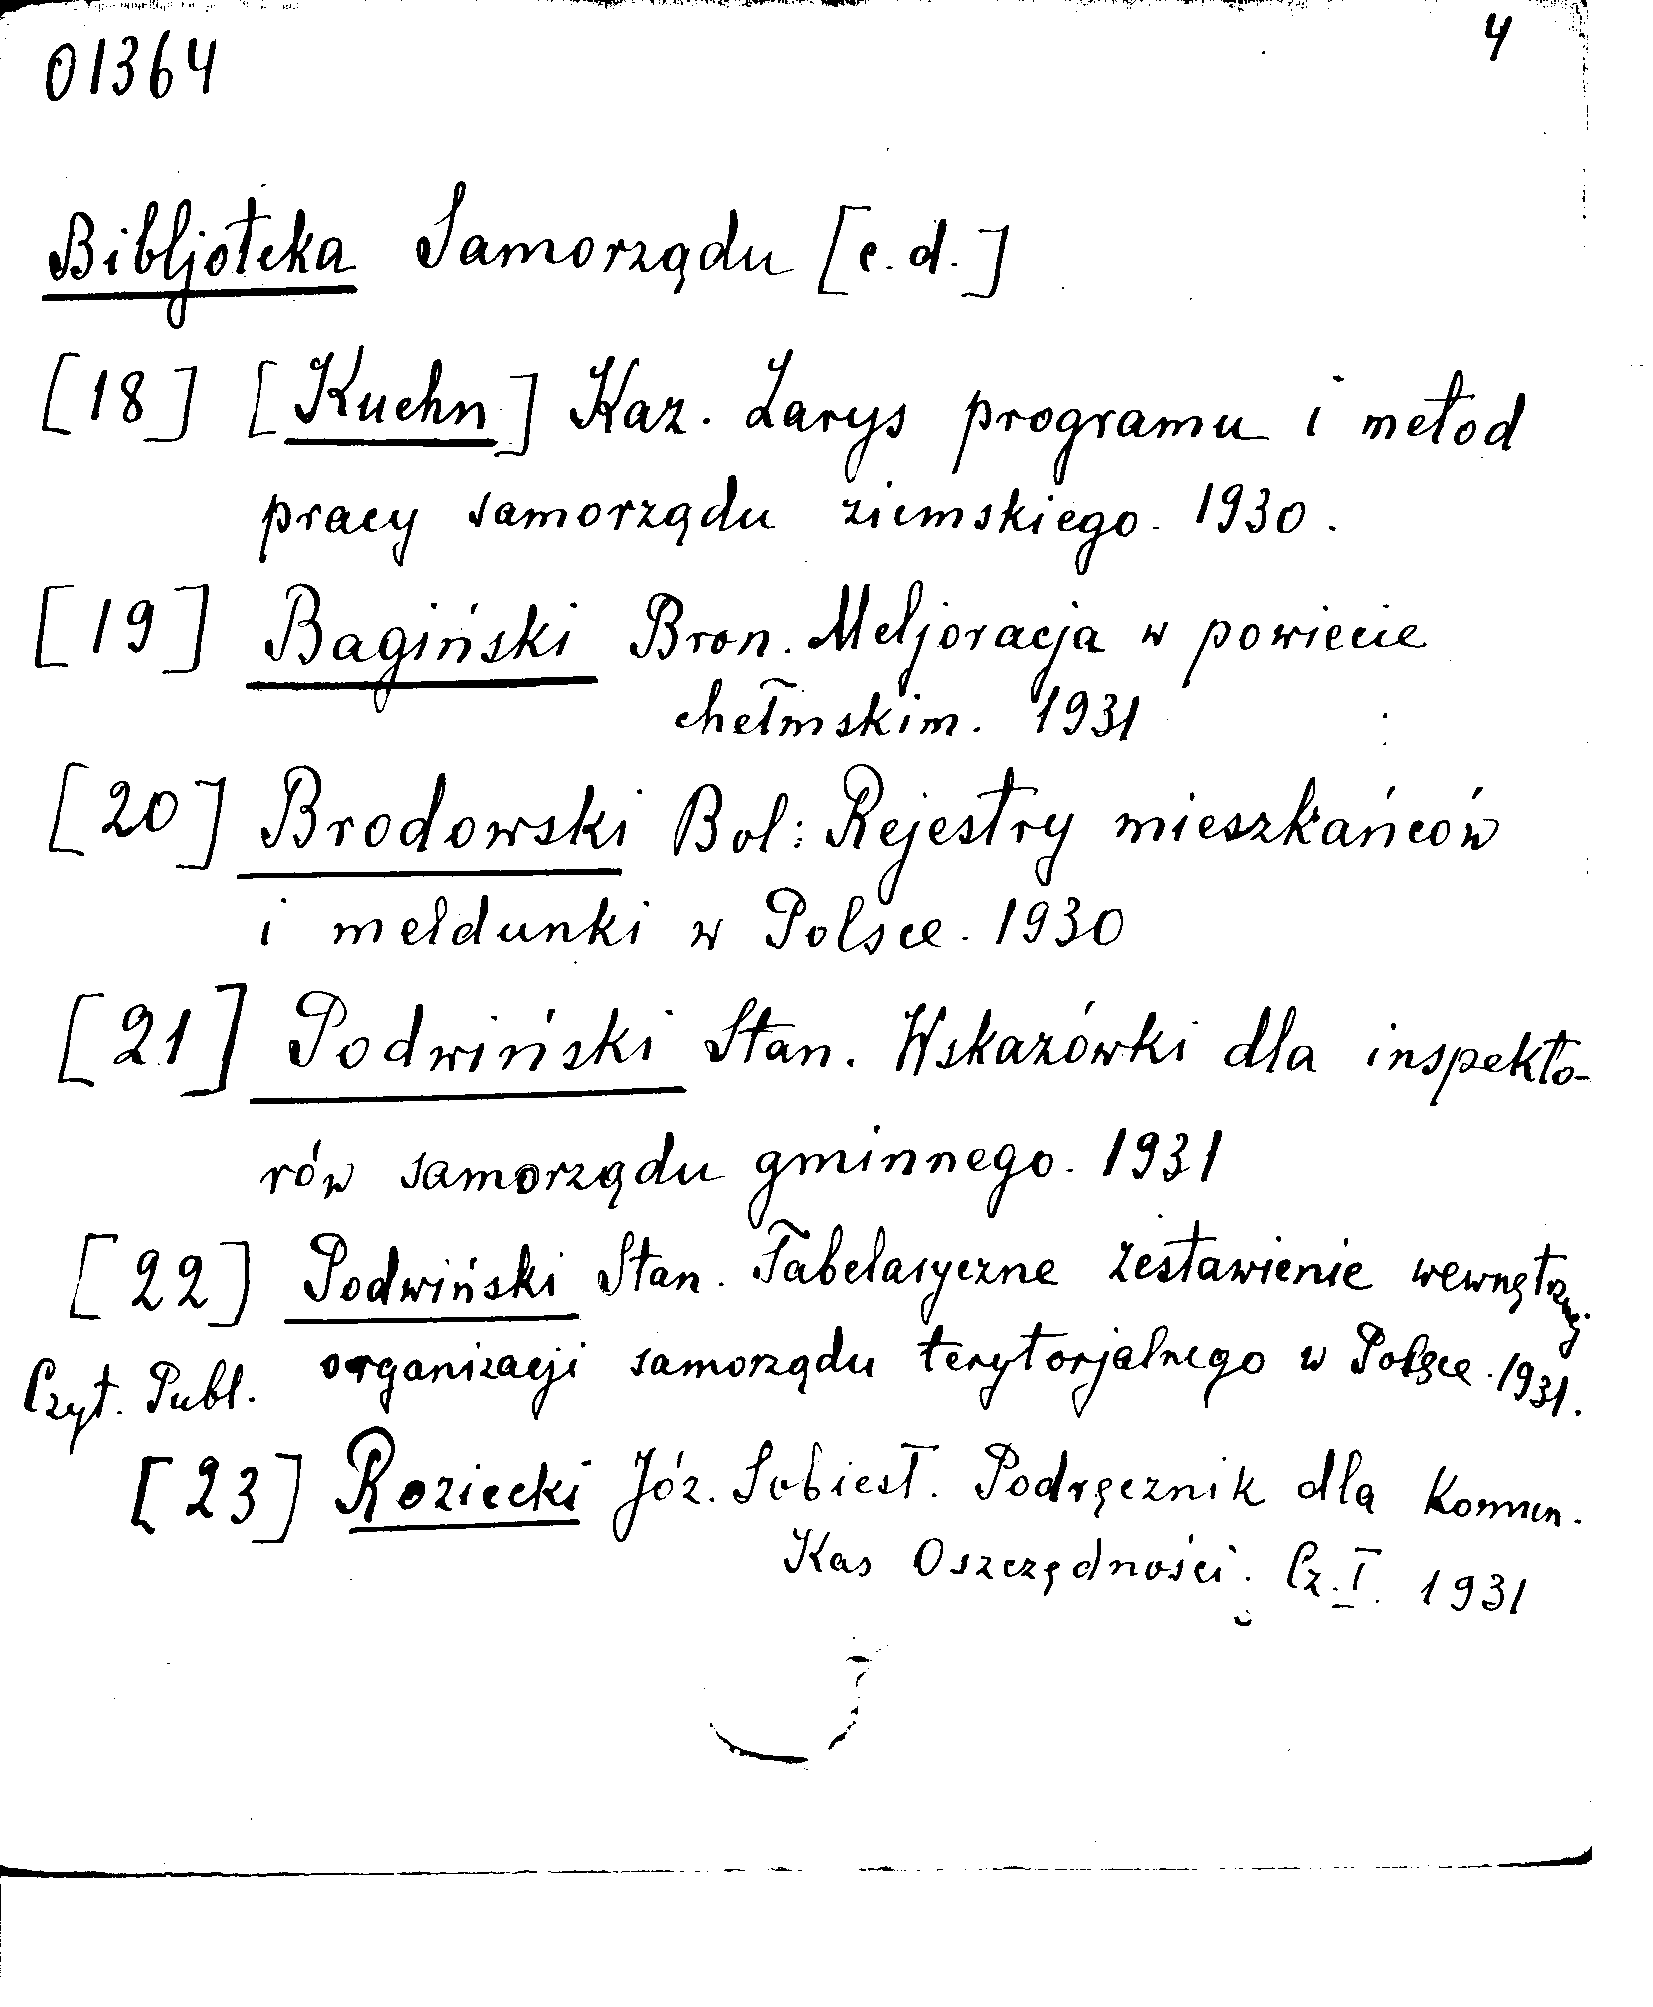 01364
4
Bibljoteka Samorządu [c.d.]
[18] [Kuehn] Kaz. Zarys programu i metod
pracy samorządu ziemskiego. 1930.
[19] Bagiński Bron. Meljoracja w powiecie
chełmskim. 1931
[20] Brodowski Bol: Rejestry mieszkańców
i meldunki w Polsce. 1930
[21] Podwiński Stan. Wskazówki dla inspekto-
rów samorządu gminnego. 1931
[22] Podwiński Stan. Tabelaryczne zestawienie wewnętrznej
Czyt. Publ. organizacji samorządu terytorjalnego w Polsce. 1931.
[23] Roziecki Józ. Sobiest. Podręcznik dla Komun.
Kas Oszczędności. Cz. I. 1931